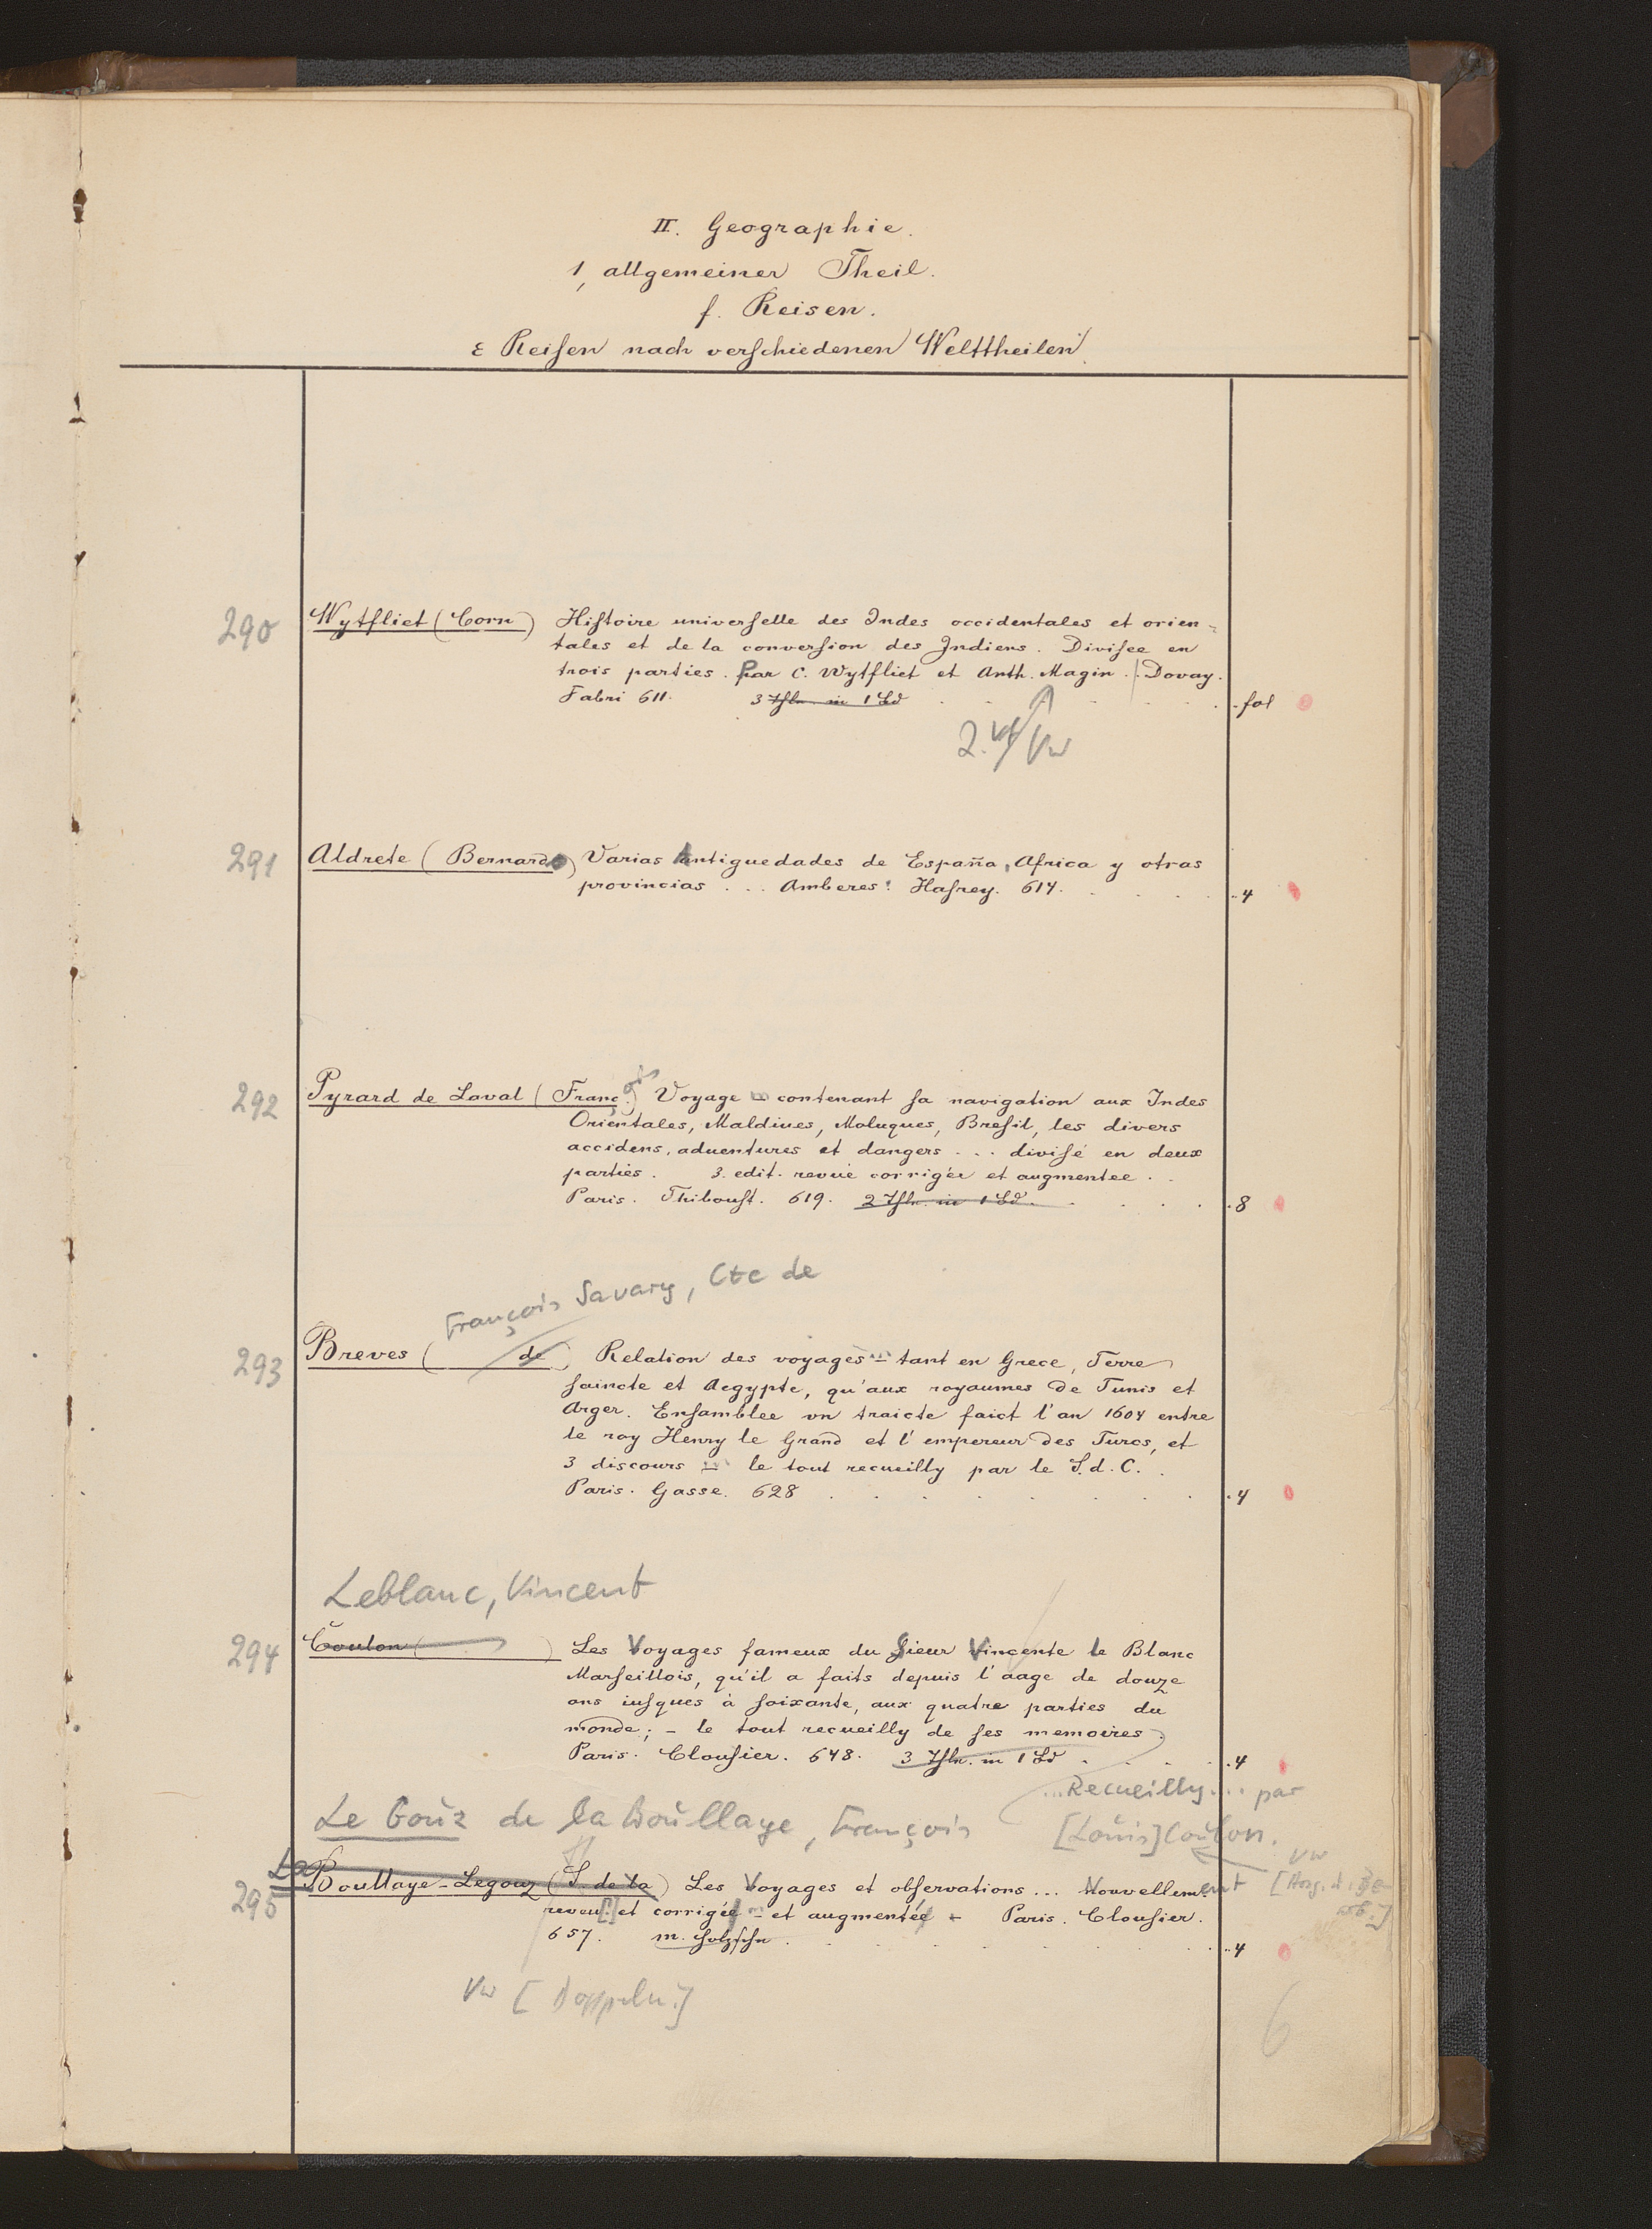 II. Geographie.
1, allgemeiner Theil.
f. Reisen.
ε Reisen nach verschiedenen Welttheilen
290 Wytfliet (Corn) Histoire universelle des Indes occidentales et orien-
tales et de la conversion des Indiens. Divisee en
trois parties. Par C. Wytfliet et Anth. Magin. | Dovay.
Fabri 611. 3 Thle. in 1 Bd . . . . . fol
2. Vf/Vw
291 Aldrete (Bernardo) Varias Antiguedades de España, Africa y otras
provincias ... Amberes: Hasrey. 614. . . . . 4
292 Pyrard de Laval (Franç.ois) Voyage contenant sa navigation aux Indes
Orientales, Maldives, Moluques, Bresil, les divers
accidens, aduentures et dangers ... divisé en deux
parties. 3. edit. revue corrigée et augmentee . .
Paris. Thiboust. 619. 2 Thle. in 1 Bd. . . . . 8
François Savary, Cte de
293 Breves ( de) Relation des voyages – tant en Grece, Terre
saincte et Aegypte, qu'aux royaumes de Tunis et
Arger. Ensamblee vn traicte faict l'an 1604 entre
le roy Henry le Grand et l'empereur des Turcs, et
3 discours – le tout recueilly par le S.d.C. .
Paris. Gasse. 628 . . . . . . . 4
Leblanc, Vincent
294 Coulon ( ) Les Voyages fameux du Sieur Vincente le Blanc
Marseillois, qu'il a faits depuis l'aage de douze
ans iusques à soixante, aux quatre parties du
monde; – le tout recueilly de ses memoires
Paris. Clousier. 648. 3 Thle. in 1 Bd . . . . 4
...Recueilly... par
Le Gouz de la Boullaye, François [Louis] Coulon.
Vw
295 La Boullaye-Legouz (S. de la) Les Voyages et observations ... Nouvellement
reveu[.] et corrigé – et augmenté – Paris. Clousier.
657. m. Holzschn. . . . . . . . 4
Vw [Doppeln.]
6